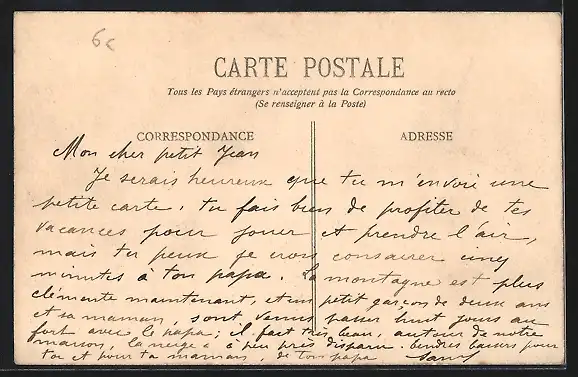 6c
CARTE POSTALE
Tous les Pays étrangers n'acceptent pas la Correspondance au recto
(Se renseigner à la Poste)
CORRESPONDANCE
ADRESSE
Mon cher petit Jean
Je serais heureux que tu m'envoie une
petite carte, tu fais bien de profiter de tes
vacances pour jouer et prendre l'air,
mais tu peux je crois consacrer cinq
minutes à ton papa. La montagne est plus
clémente maintenant, et un petit garçon de deux ans
et sa maman, sont venus passer huit jours au
fort avec le papa; il fait très beau, autour de notre
maison, la neige a à peu près disparu. tendres baisers pour
toi et pour ta maman, de ton papa